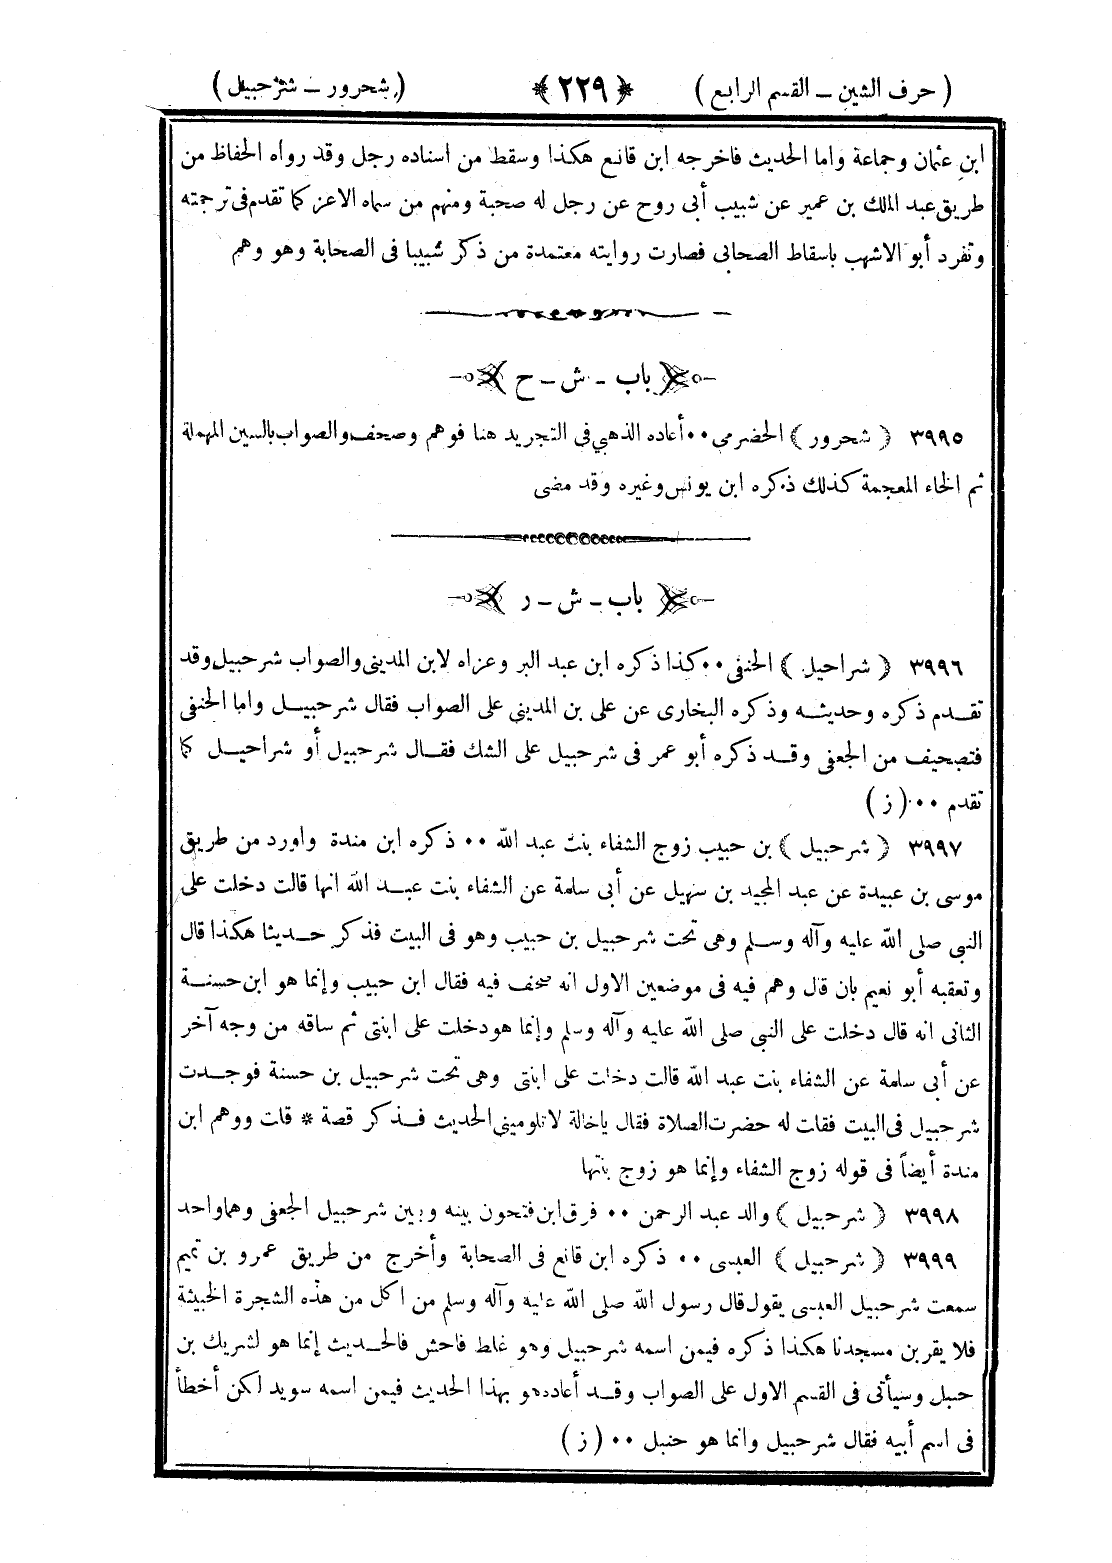 ( حرف الشين ــ القسم الرابع ) ﴿ ٢٢٩ ﴾ ( شحرور ــ شرحبيل )
ابن عثمان وجماعة واما الحديث فاخرجه ابن قانع هكذا وسقط من اسناده رجل وقد رواه الحفاظ من
طريق عبد الملك بن عمير عن شبيب أبى روح عن رجل له صحبة ومنهم من سماه الاعز كما تقدم فى ترجمته
وتفرد أبو الاشهب باسقاط الصحابى فصارت روايته معتمدة من ذكر شبيبا فى الصحابة وهو وهم
باب - ش - ح
٣٩٩٥ ﴿ شحرور ﴾ الحضرمى ٠٠ أعاده الذهبي فى التجريد هنا فوهم وصحف والصواب بالسين المهملة
ثم الخاء المعجمة كذلك ذكره ابن يونس وغيره وقد مضى
باب - ش - ر
٣٩٩٦ ﴿ شراحيل ﴾ الحنفى ٠٠ كذا ذكره ابن عبد البر وعزاه لابن المدينى والصواب شرحبيل وقد
تقدم ذكره وحديثه وذكره البخارى عن على بن المديني على الصواب فقال شرحبيل واما الحنفى
فتصحيف من الجعفى وقد ذكره أبو عمر فى شرحبيل على الشك فقال شرحبيل أو شراحيل كما
تقدم ٠٠ ( ز )
٣٩٩٧ ﴿ شرحبيل ﴾ بن حبيب زوج الشفاء بنت عبد الله ٠٠ ذكره ابن مندة واورد من طريق
موسى بن عبيدة عن عبد المجيد بن سهيل عن أبى سلمة عن الشفاء بنت عبد الله انها قالت دخلت على
النبى صلى الله عليه وآله وسلم وهى تحت شرحبيل بن حبيب وهو فى البيت فذكر حديثا هكذا قال
وتعقبه أبو نعيم بان قال وهم فيه فى موضعين الاول انه صحف فيه فقال ابن حبيب وإنما هو ابن حسنة
الثانى انه قال دخلت على النبى صلى الله عليه وآله وسلم وإنما هو دخلت على ابنتى ثم ساقه من وجه آخر
عن أبى سلمة عن الشفاء بنت عبد الله قالت دخلت على ابنتى وهى تحت شرحبيل بن حسنة فوجدت
شرحبيل فى البيت فقلت له حضرت الصلاة فقال ياخالة لاتلومينى الحديث فذكر قصة * قلت ووهم ابن
مندة أيضاً فى قوله زوج الشفاء وإنما هو زوج بنتها
٣٩٩٨ ﴿ شرحبيل ﴾ والد عبد الرحمن ٠٠ فرق ابن فتحون بينه وبين شرحبيل الجعفى وهما واحد
٣٩٩٩ ﴿ شرحبيل ﴾ العبسى ٠٠ ذكره ابن قانع فى الصحابة وأخرج من طريق عمرو بن تميم
سمعت شرحبيل العبسى يقول قال رسول الله صلى الله عليه وآله وسلم من اكل من هذه الشجرة الخبيثة
فلا يقربن مسجدنا هكذا ذكره فيمن اسمه شرحبيل وهو غلط فاحش فالحديث إنما هو لشريك بن
حنبل وسيأتى فى القسم الاول على الصواب وقد أعاده هو بهذا الحديث فيمن اسمه سويد لكن أخطأ
فى اسم أبيه فقال شرحبيل وانما هو حنبل ٠٠ ( ز )